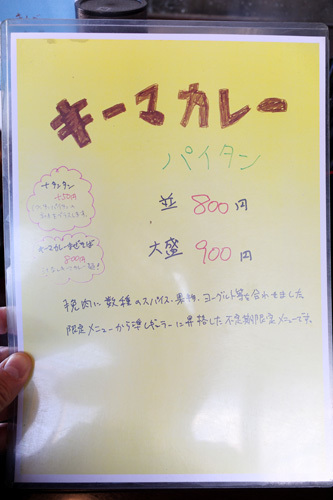 キーマカレー
パイタン
並 800円
大盛 900円
+タンタン
+50円
キーマカレーまぜそば
800円
挽肉に数種のスパイス、香味、ヨーグルト等を合わせました
限定メニューから準レギュラーに昇格した不定期限定メニューです。